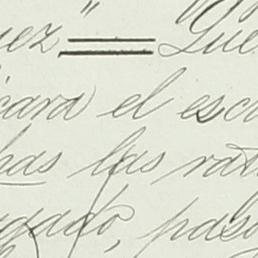 uez" = Gue
icara el escu
has las rati
ugado, paso